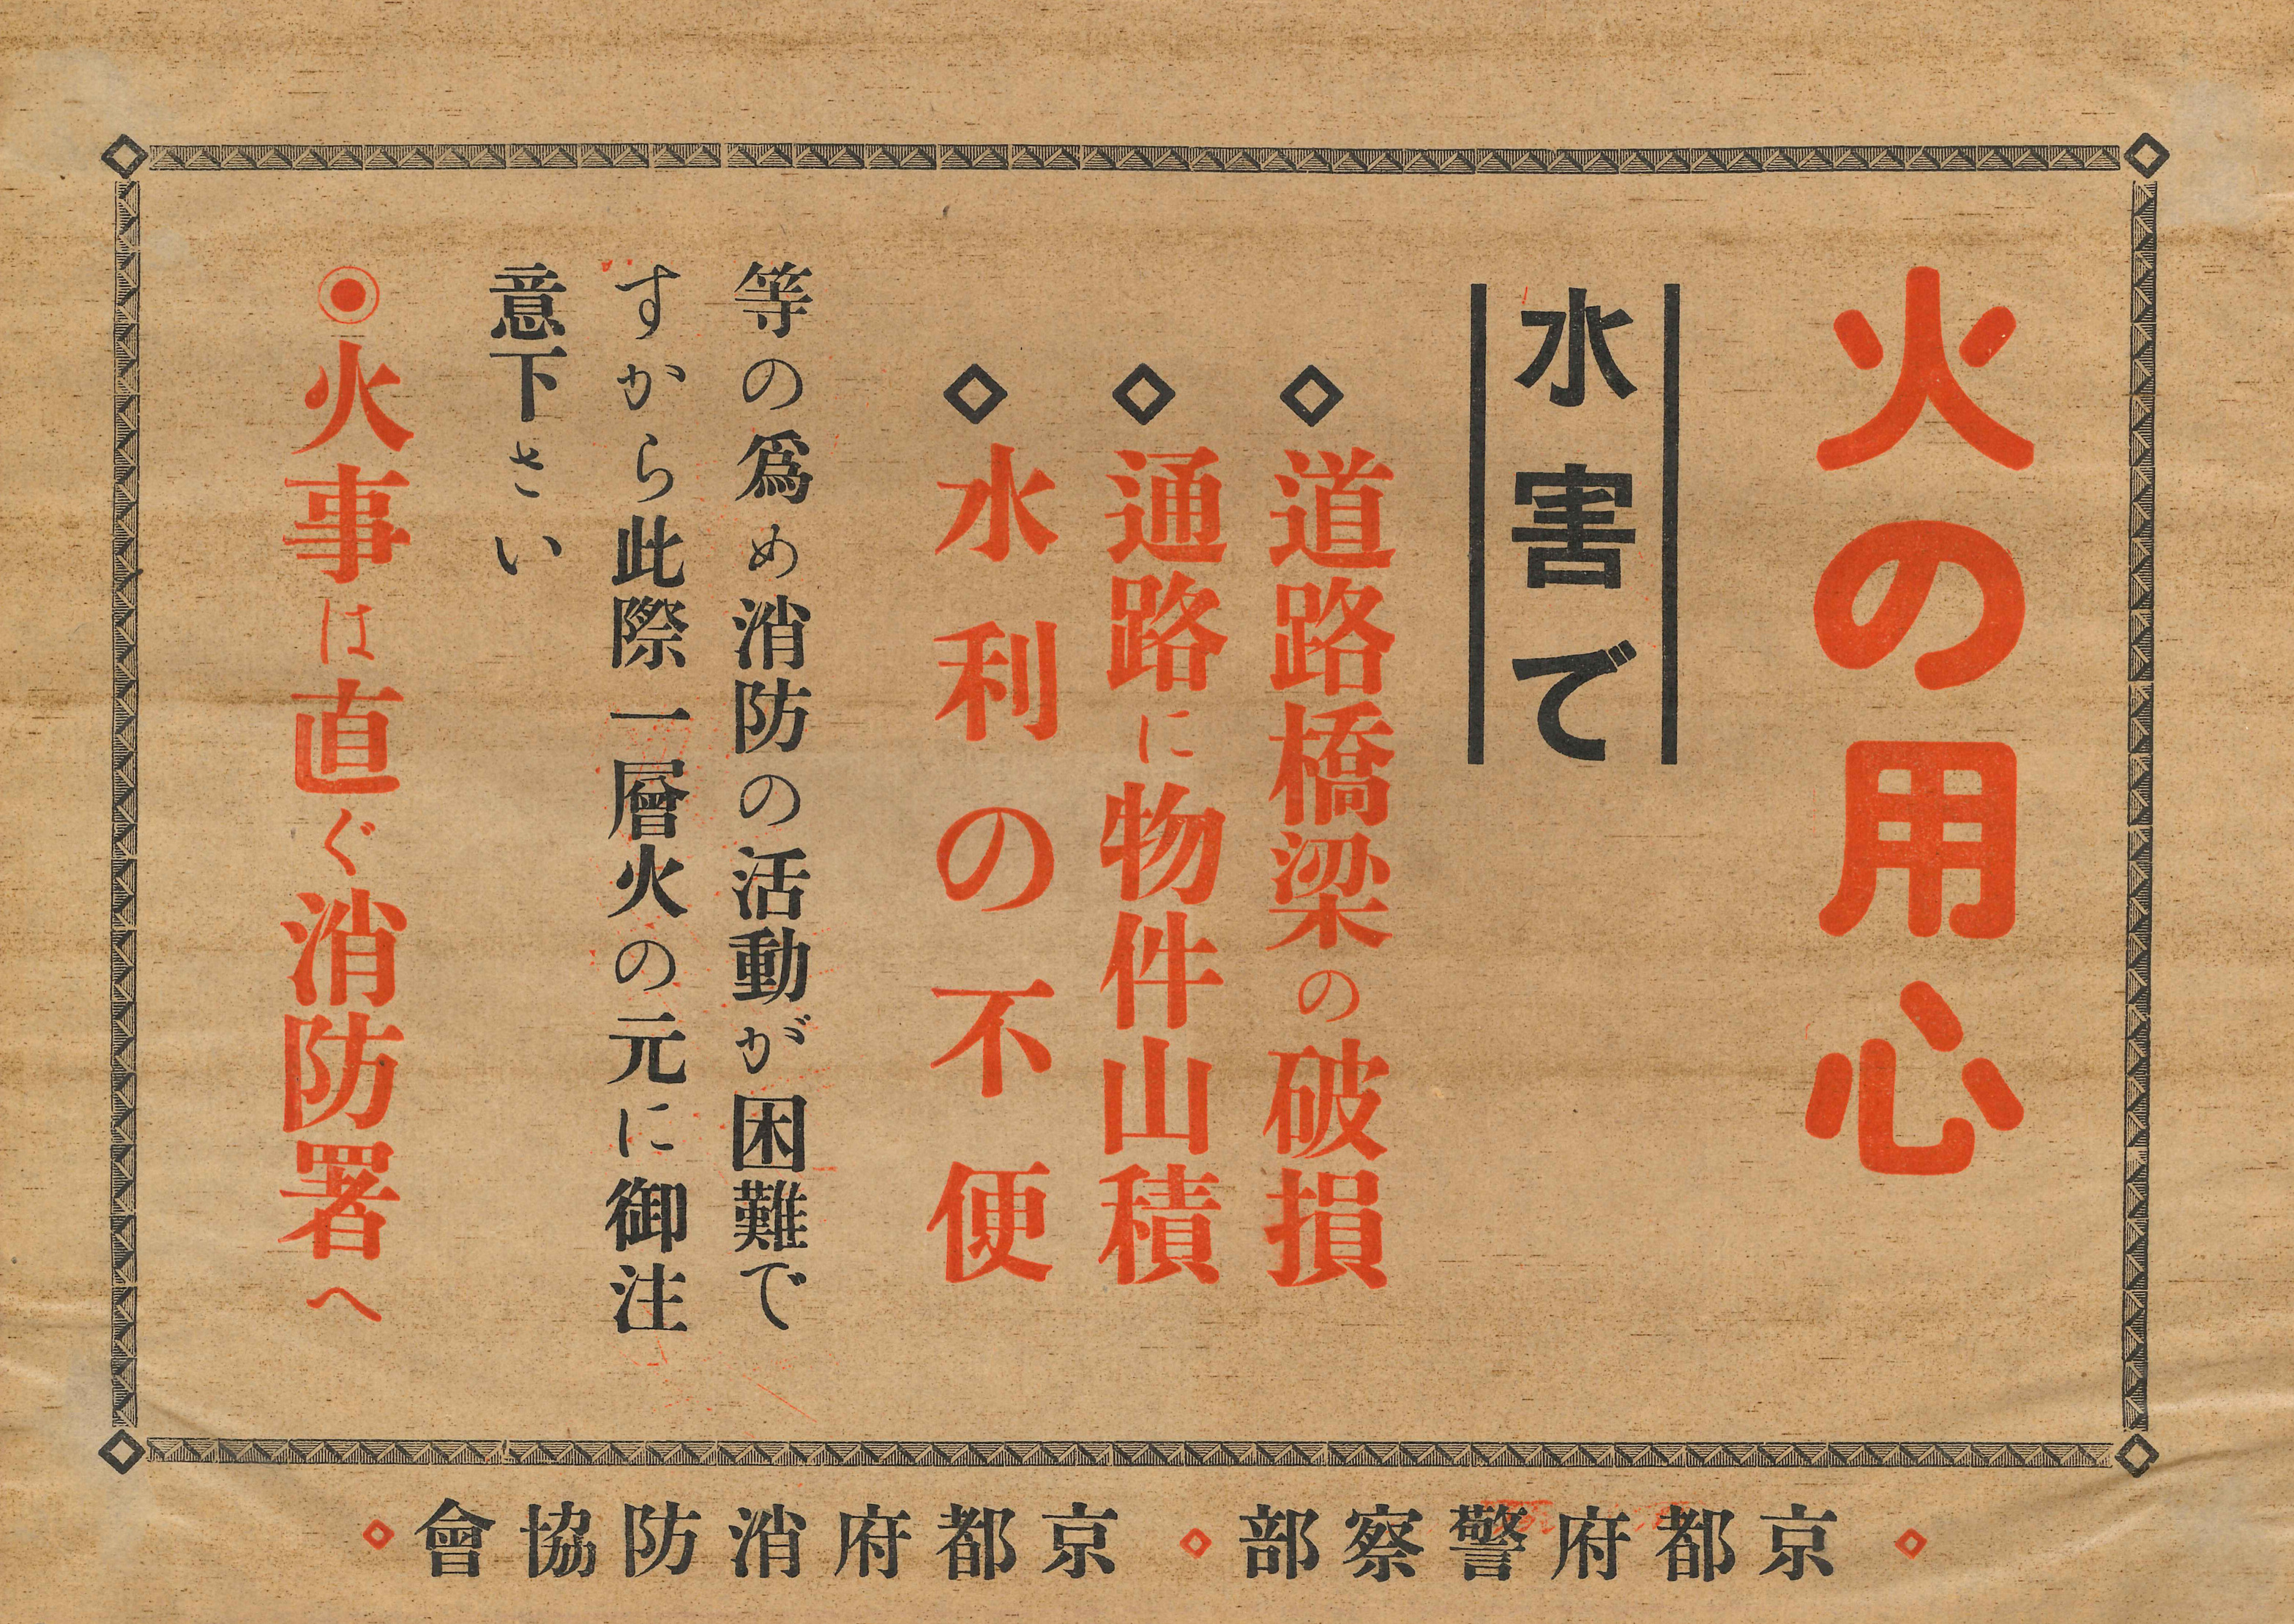 火の用心
水害で
◇道路橋梁の破損
◇通路に物件山積
◇水利の不便
等の爲め消防の活動が困難で
すから此際一層火の元に御注
意下さい
◉火事は直ぐ消防署へ
◇京都府警察部◇京都府消防協會◇